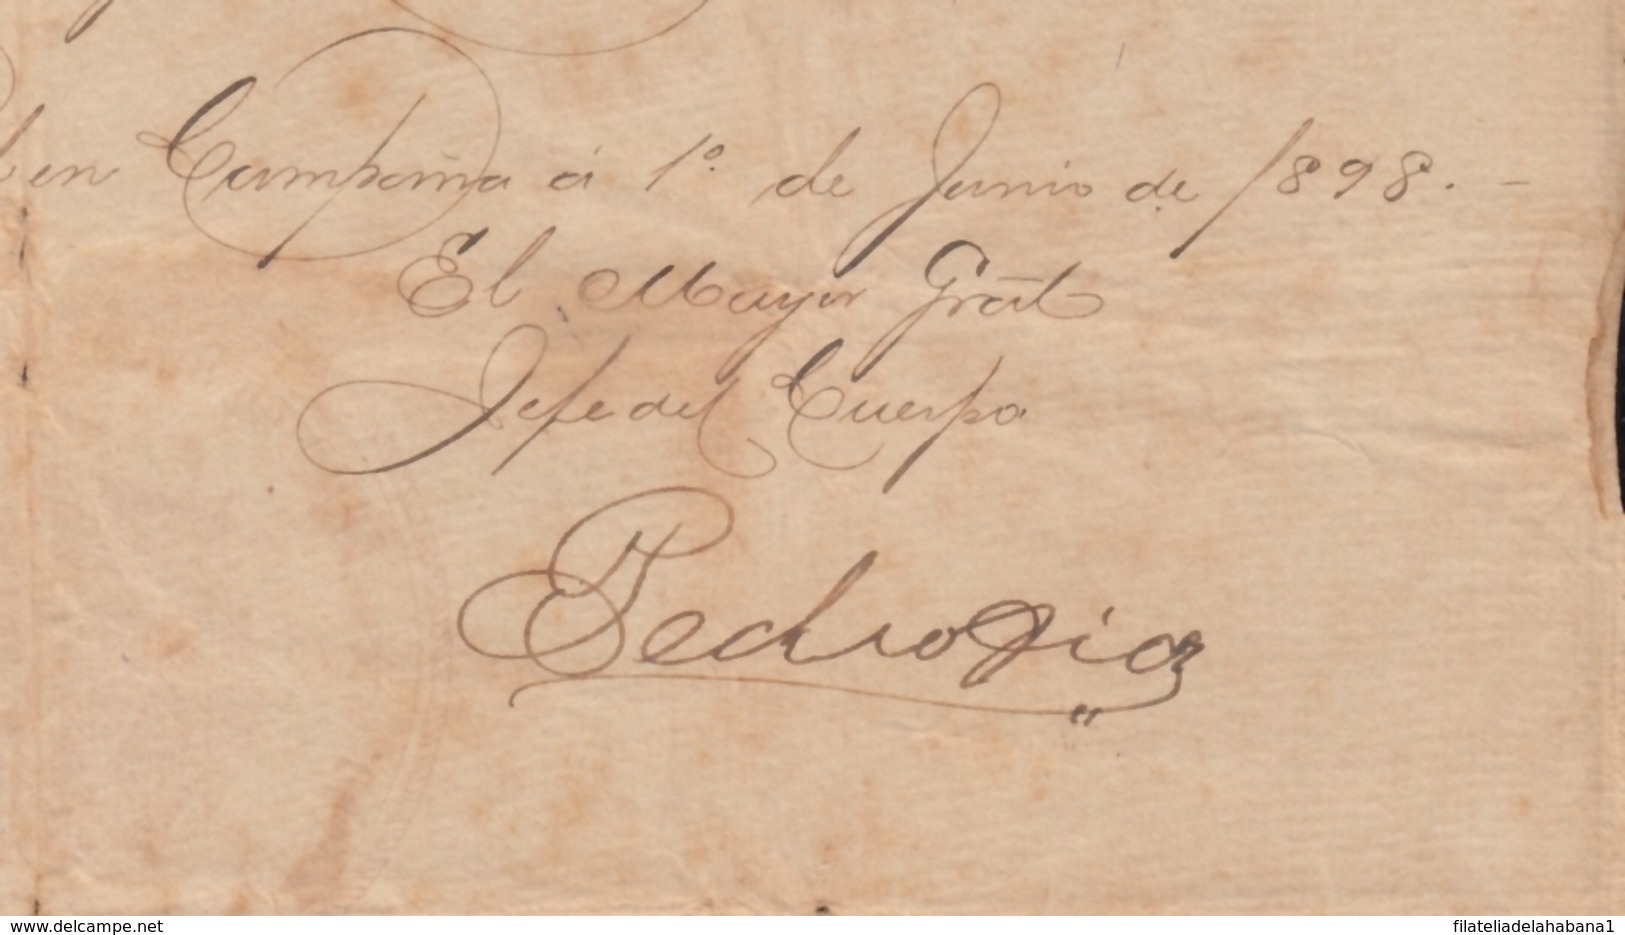 en Campaña á 1º de Junio de 1898. –
El Mayor Gral
Jefe del Cuerpo
Pedro Díaz
delcampe.net
filateliadelahabana1